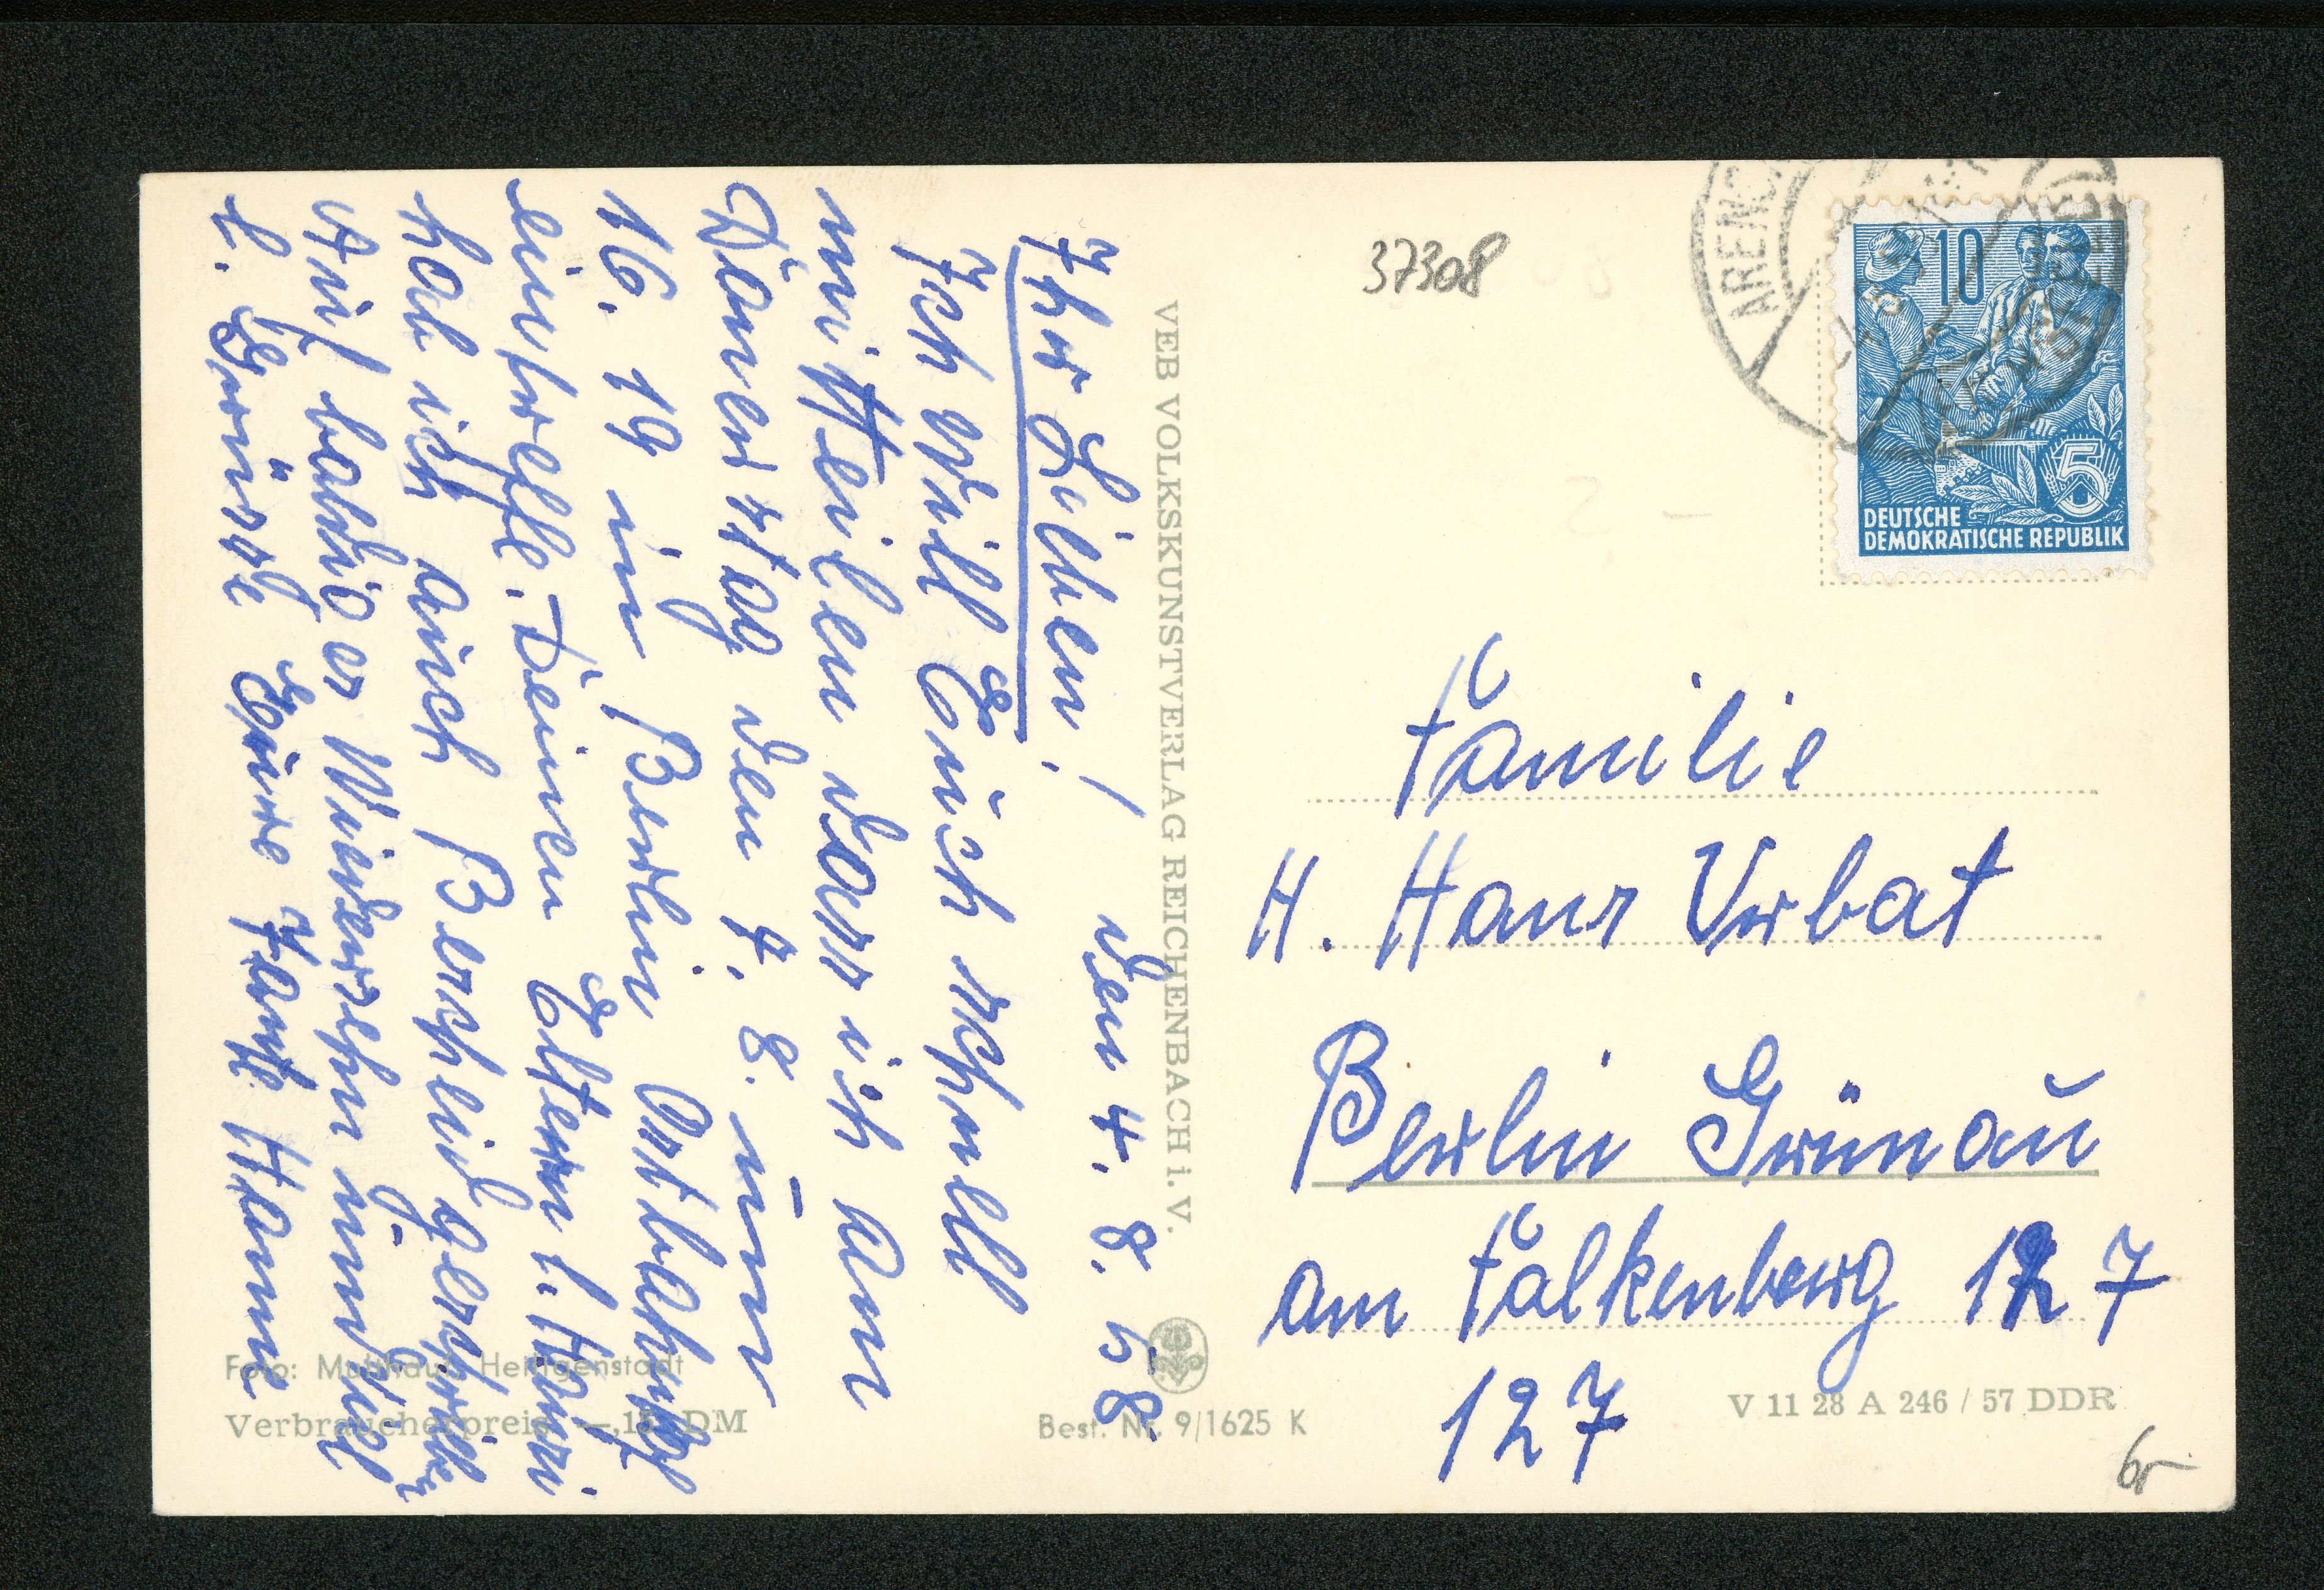 den 4. 8. 58
Ihr Lieben!
Ich will Euch schnell
mitteilen dass ich am
Donerstag den 7. 8. um
16.19 in Berlin Ostbahnhf
eintreffe. Deinen Eltern l. Hanni
hab ich auch Bescheid geschrieben
Auf baldiges Wiedersehn und viel
l. Grüsse Eure Tante Hanne
VEB VOLKSKUNSTVERLAG REICHENBACH i. V.
Foto: Multhaupt, Heiligenstadt
Verbraucherpreis —,15 DM
Best. Nr. 9/1625 K
37308
ARENDS
10
5
DEUTSCHE
DEMOKRATISCHE REPUBLIK
Familie
H. Hans Urbat
Berlin Grünau
am Falkenberg 127
127
V 11 28 A 246 / 57 DDR